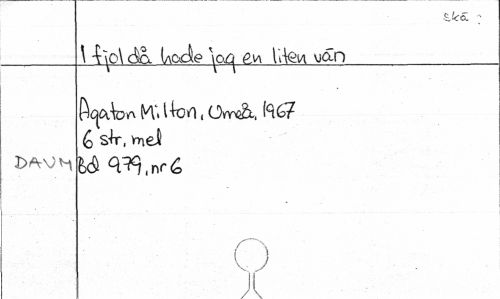 skå:
I fjol då hade jag en liten vän
Agaton Milton, Umeå, 1967
6 str, mel
DAUM Bd 979, nr 6